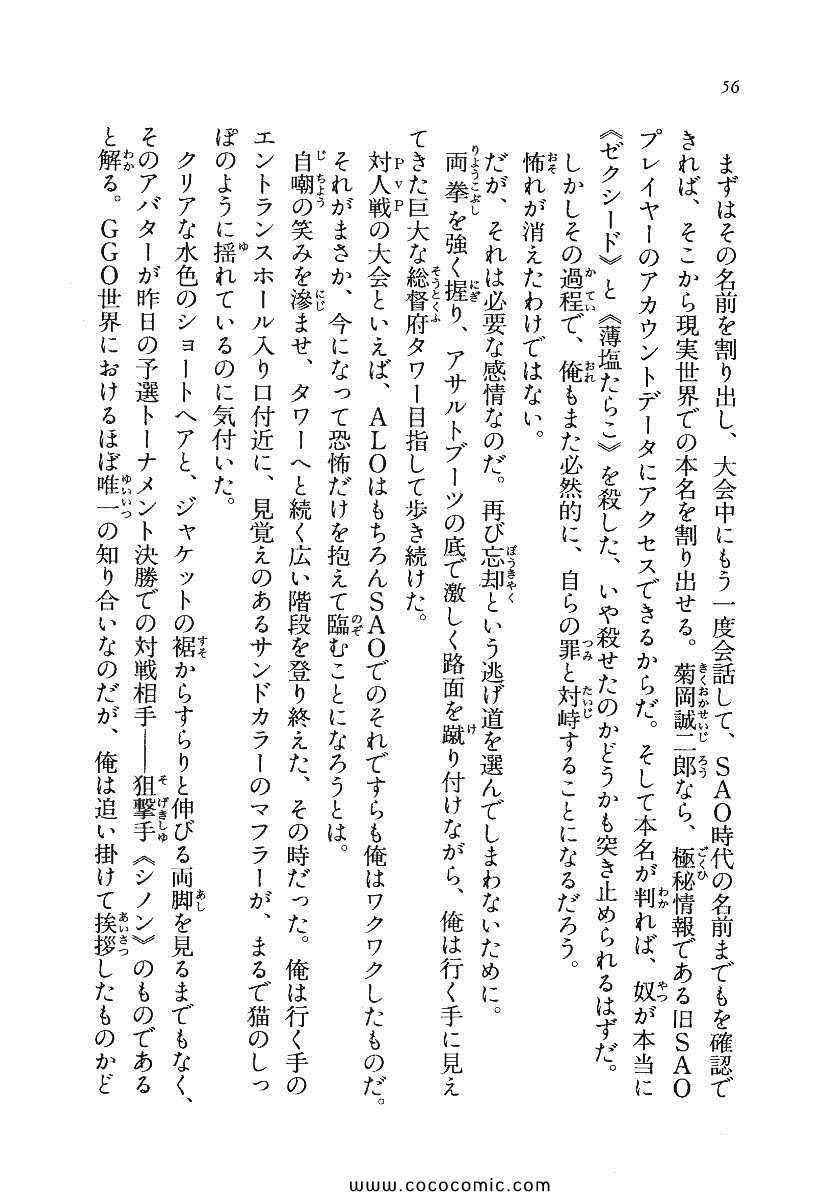 56
まずはその名前を割り出し、大会中にもう一度会話して、SAO時代の名前までもを確認で
きれば、そこから現実世界での本名を割り出せる。菊岡誠二郎なら、極秘情報である旧SAO
プレイヤーのアカウントデータにアクセスできるからだ。そして本名が判れば、奴が本当に
《ゼクシード》と《薄塩たらこ》を殺した、いや殺せたのかどうかも突き止められるはずだ。
しかしその過程で、俺もまた必然的に、自らの罪と対峙することになるだろう。
怖れが消えたわけではない。
だが、それは必要な感情なのだ。再び忘却という逃げ道を選んでしまわないために。
両拳を強く握り、アサルトブーツの底で激しく路面を蹴り付けながら、俺は行く手に見え
てきた巨大な総督府タワー目指して歩き続けた。
対人戦の大会といえば、ALOはもちろんSAOでのそれですらも俺はワクワクしたものだ。
それがまさか、今になって恐怖だけを抱えて臨むことになろうとは。
自嘲の笑みを滲ませ、タワーへと続く広い階段を登り終えた、その時だった。俺は行く手の
エントランスホール入り口付近に、見覚えのあるサンドカラーのマフラーが、まるで猫のしっ
ぽのように揺れているのに気付いた。
クリアな水色のショートヘアと、ジャケットの裾からすらりと伸びる両脚を見るまでもなく、
そのアバターが昨日の予選トーナメント決勝での対戦相手――狙撃手《シノン》のものである
と解る。GGO世界におけるほぼ唯一の知り合いなのだが、俺は追い掛けて挨拶したものかど
www.cococomic.com